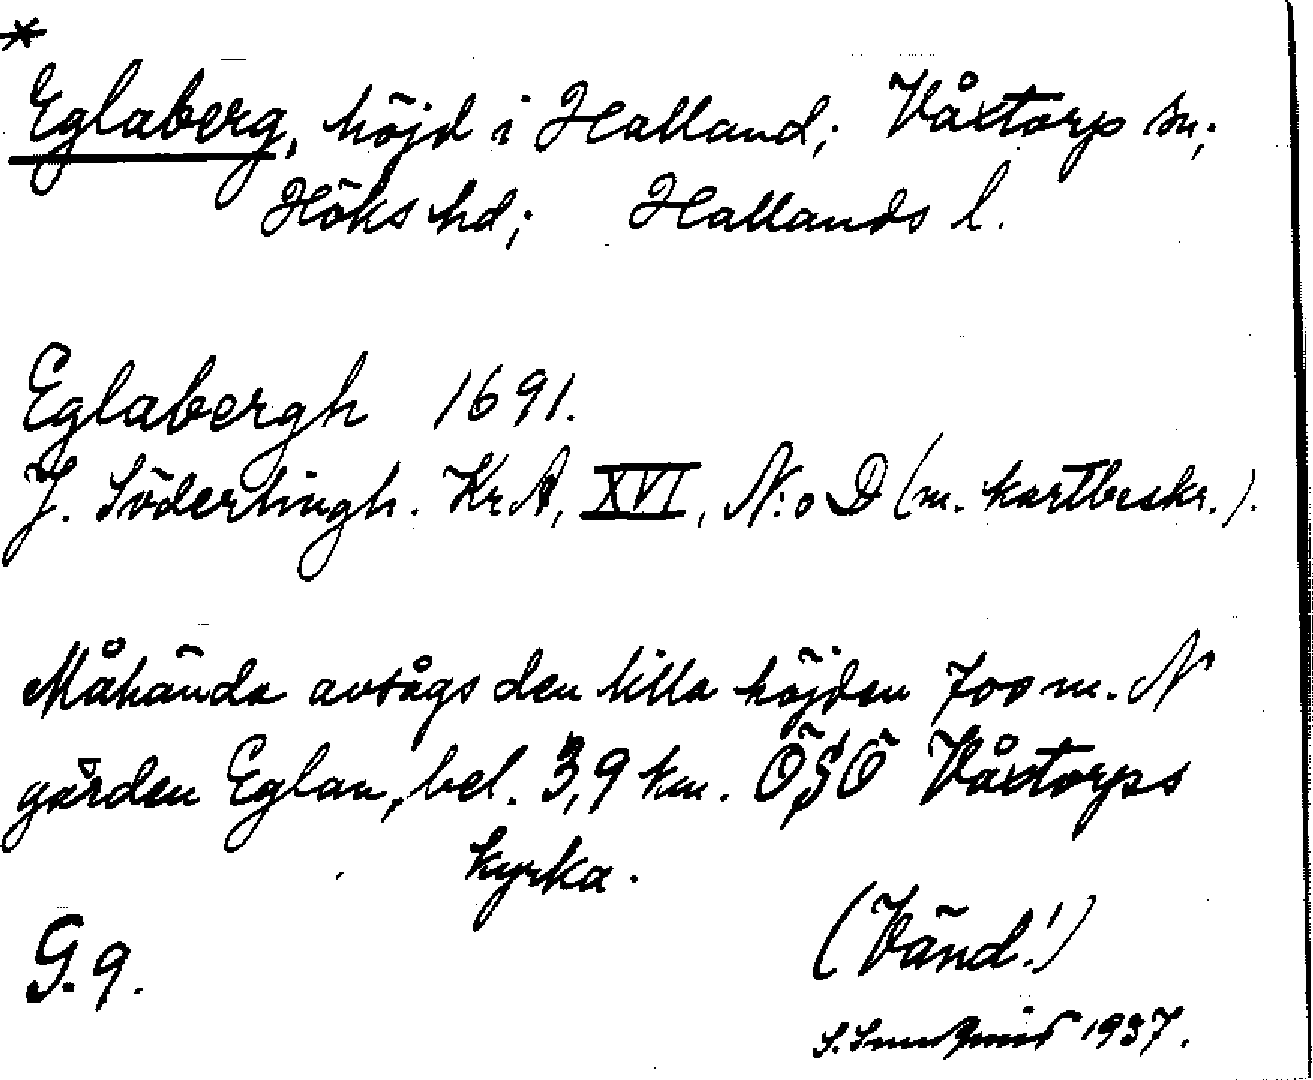 *
Eglaberg, höjd i Halland; Våxtorp sn;
Höks hd; Hallands l.
Eglabergh 1691.
J. Söderlingh. Kr.A, XVI, N:o D (m. kartbeskr.).
Måhända avsågs den lilla höjden 700 m. N
gården Eglan, bel. 3,9 km. ÖSÖ Våxtorps
kyrka.
G.9. (Vänd!)
S. Sundqvist 1937.